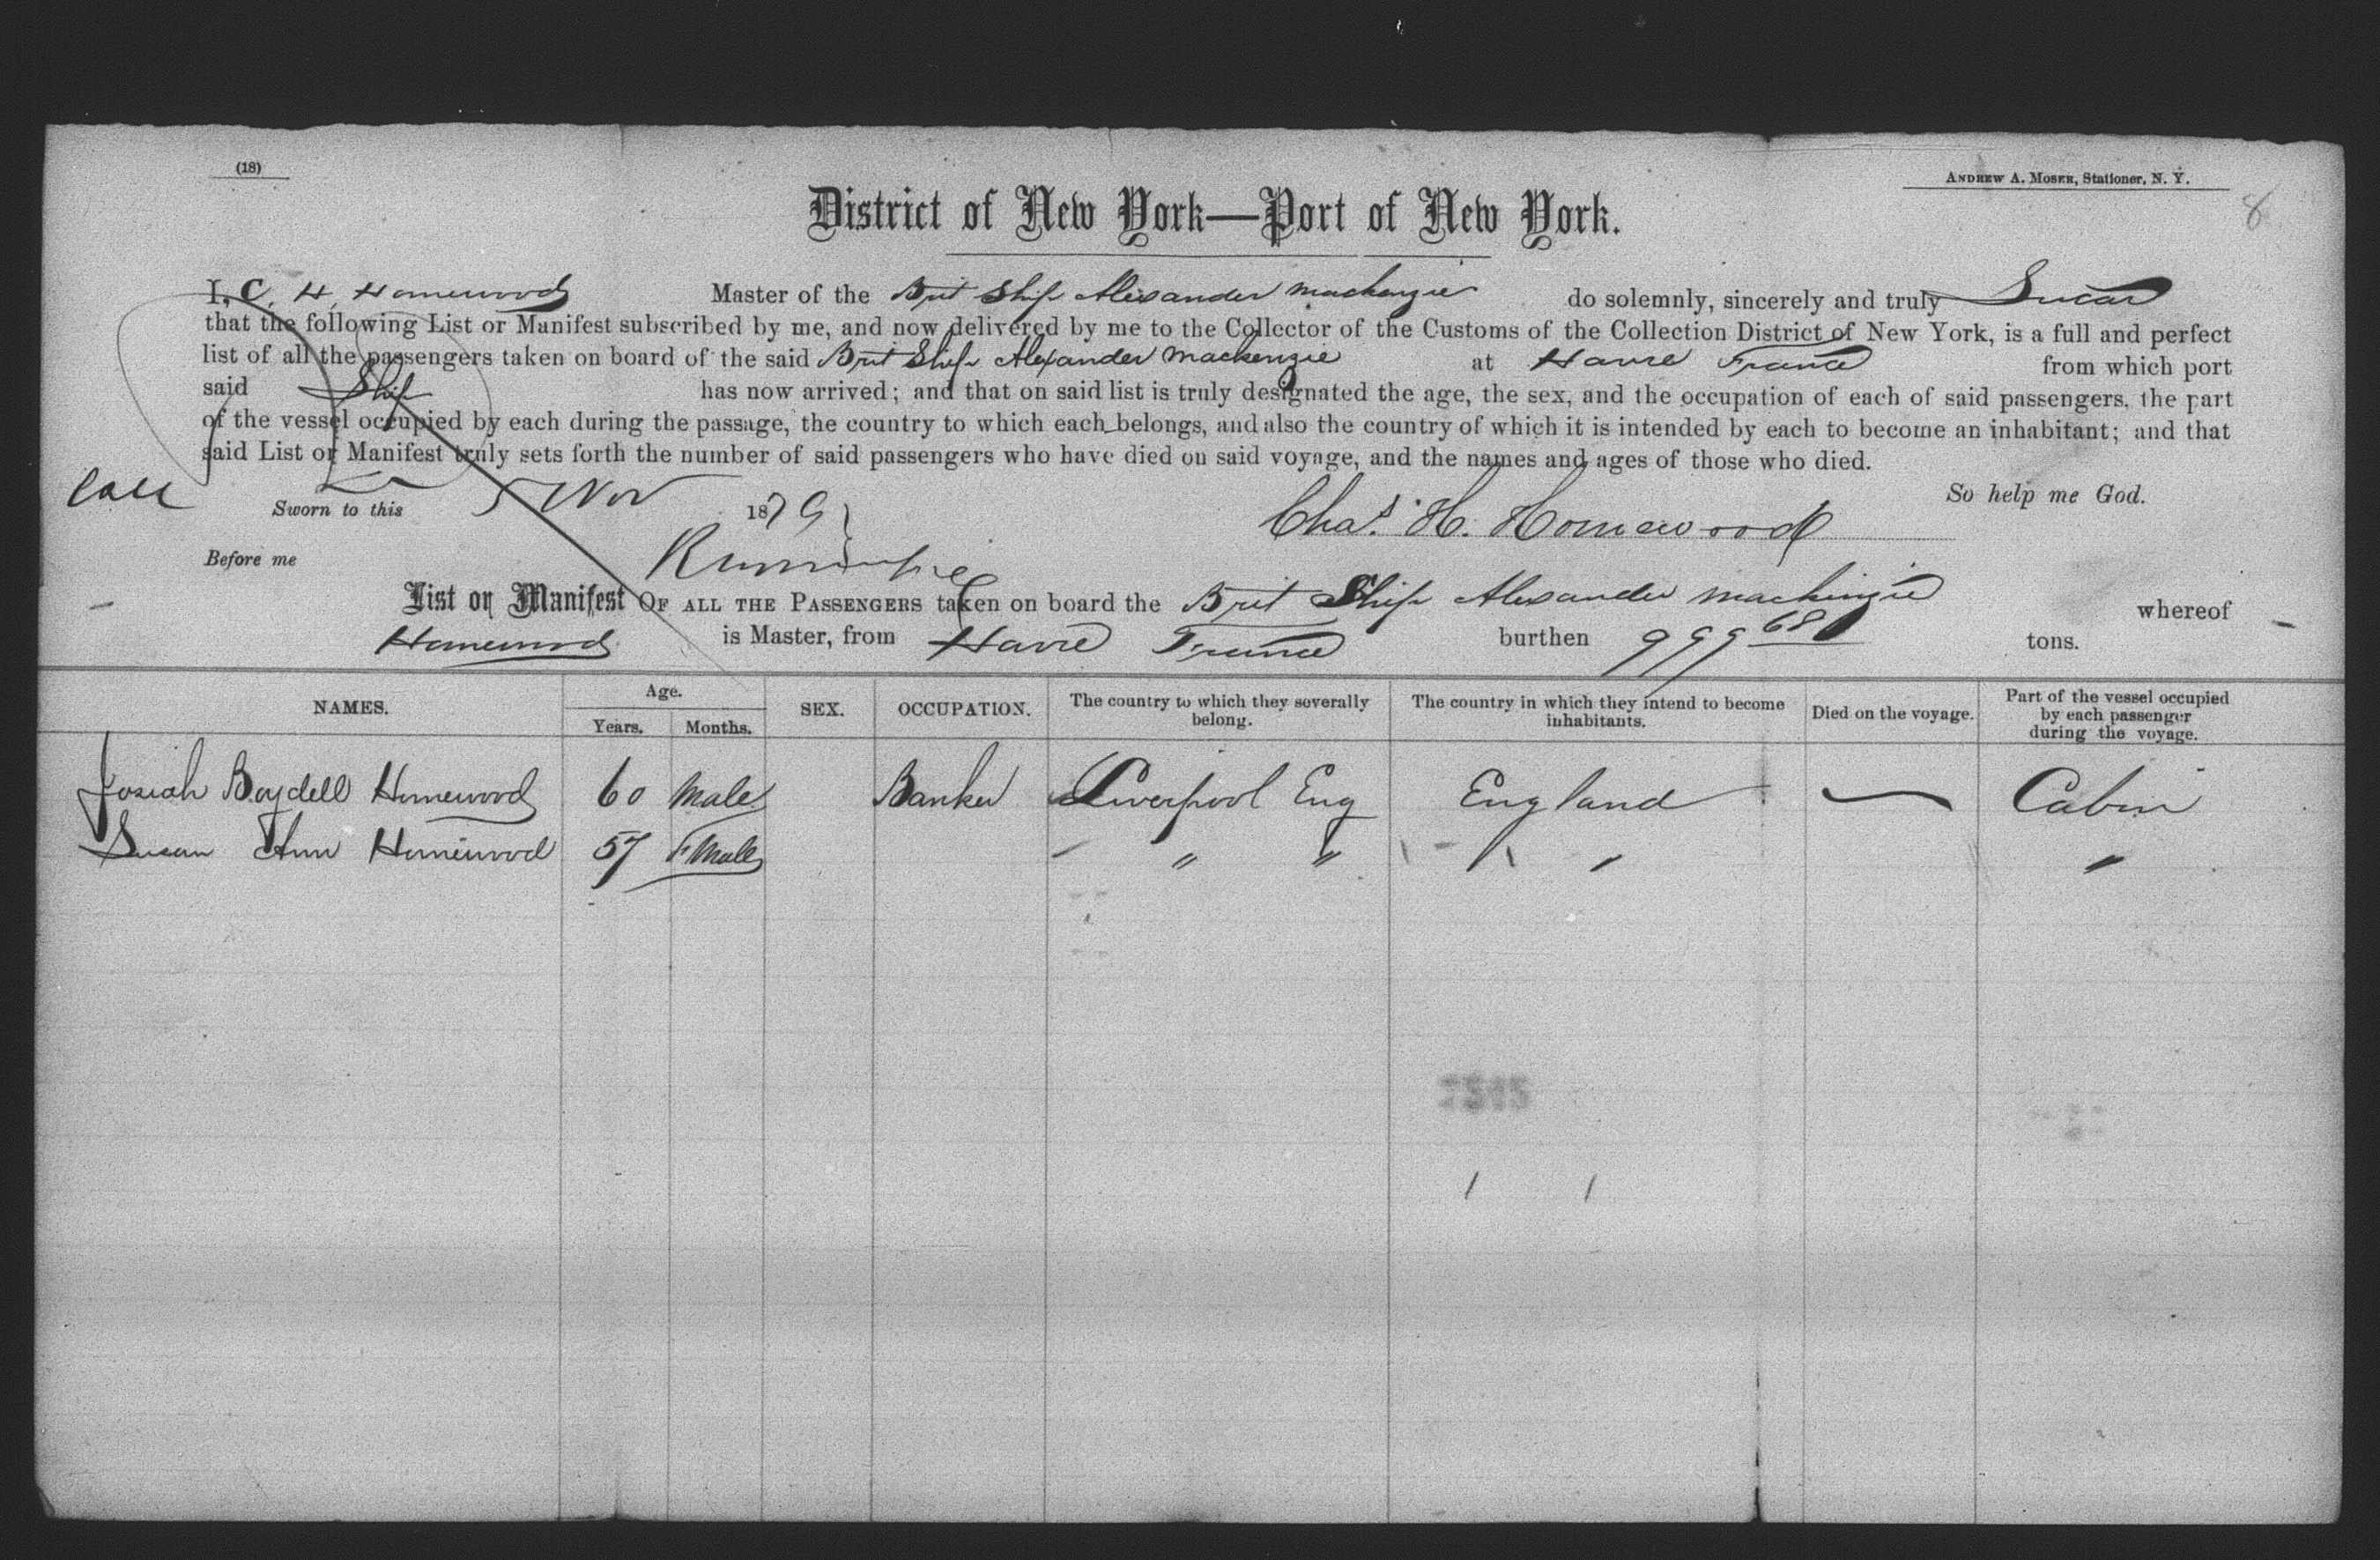 (18)
ANDREW A. MOSER, Stationer, N. Y.
8
District of New York—Port of New York.
I, C. H. Homewood Master of the Brit Ship Alexander Mackenzie do solemnly, sincerely and truly Swear
that the following List or Manifest subscribed by me, and now delivered by me to the Collector of the Customs of the Collection District of New York, is a full and perfect
list of all the passengers taken on board of the said Brit Ship Alexander Mackenzie at Havre France from which port
said Ship has now arrived; and that on said list is truly designated the age, the sex, and the occupation of each of said passengers, the part
of the vessel occupied by each during the passage, the country to which each belongs, and also the country of which it is intended by each to become an inhabitant; and that
said List or Manifest truly sets forth the number of said passengers who have died on said voyage, and the names and ages of those who died.
So help me God.
Sworn to this 5 Nov 1879
Chas. H. Homewood
Before me
List or Manifest OF ALL THE PASSENGERS taken on board the Brit Ship Alexander Mackenzie whereof
Homewood is Master, from Havre France burthen 999 68 tons.
NAMES. Age. Years. Months. SEX. OCCUPATION. The country to which they severally belong. The country in which they intend to become inhabitants. Died on the voyage. Part of the vessel occupied by each passenger during the voyage.
Josiah Boydell Homewood 60 Male Banker Liverpool Eng England — Cabin
Susan Ann Homewood 57 FMale " " " "